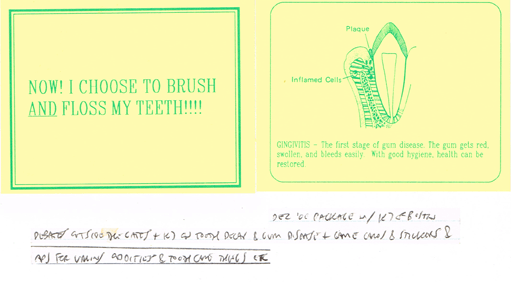 NOW! I CHOOSE TO BRUSH
AND FLOSS MY TEETH!!!!
Plaque
Inflamed Cells
GINGIVITIS - The first stage of gum disease. The gum gets red,
swollen, and bleeds easily. With good hygiene, health can be
restored
PACKAGE W/
TOOTH DECAY & GUM DISEASE + GAME CARDS & STICKERS &
& TOOTH CARE THINGS ETC